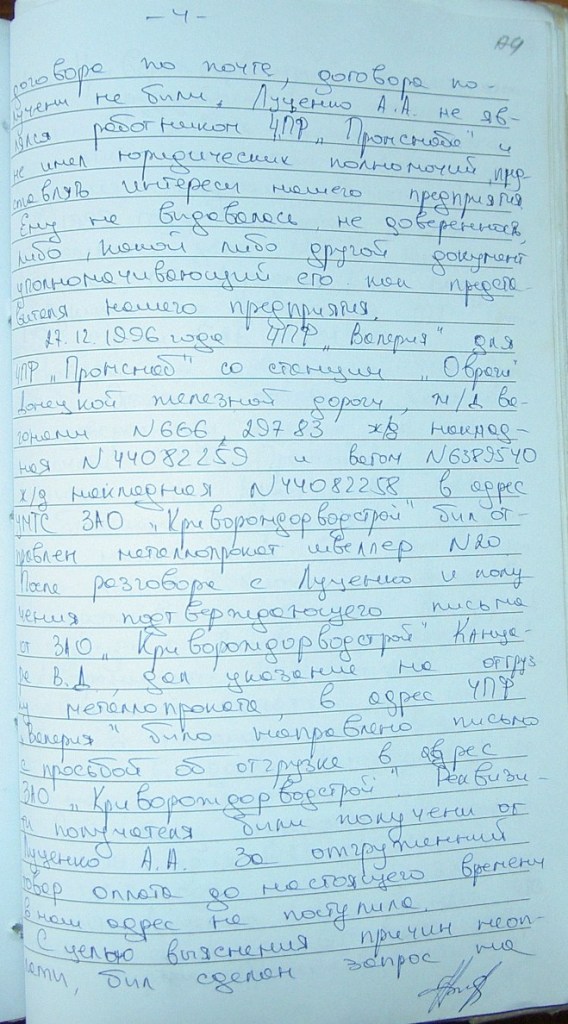 - 4 -
договора по почте, договора по-
лучени не били. Луценко А.А. не яв-
лялся работником ЧПР „Промснаб" и
не имел юридических полномочий, пред-
ставлять интереси нашего предприятия
Ему не видавалась не доверенность,
либо, какой либо другой документ
уполномачивающий его как предста-
вителя нашего предприятия.
27.12.1996 года ЧПР „Валерия" для
ЧПР „Промснаб" со станции „Овраги"
Донецкой железной дороги, ж/д ва-
гонами N666, 29783 ж/д наклад-
ная N44082259 и вагон N6389540
ж/д накладная N44082258 в адрес
УМТС ЗАО „Криворождорводстрой" бил от-
правлен металлопрокат швеллер N20.
После разговора с Луценко и полу
чения подтверждающего письма
от ЗАО „Криворождорводстрой"
В.Д, дал указание на отгруз
ку металлопроката, в адрес ЧПР
„Валерия" било направлено письмо
с просьбой об отгрузке в адрес
ЗАО „Криворождорводстрой". Реквизи-
ти получателя били получени от
Луценко А.А. За отгруженний
товар оплата до настоящего времени
в наш адрес не поступила.
С целью выяснения причин неоп-
лати, бил сделан запрос на